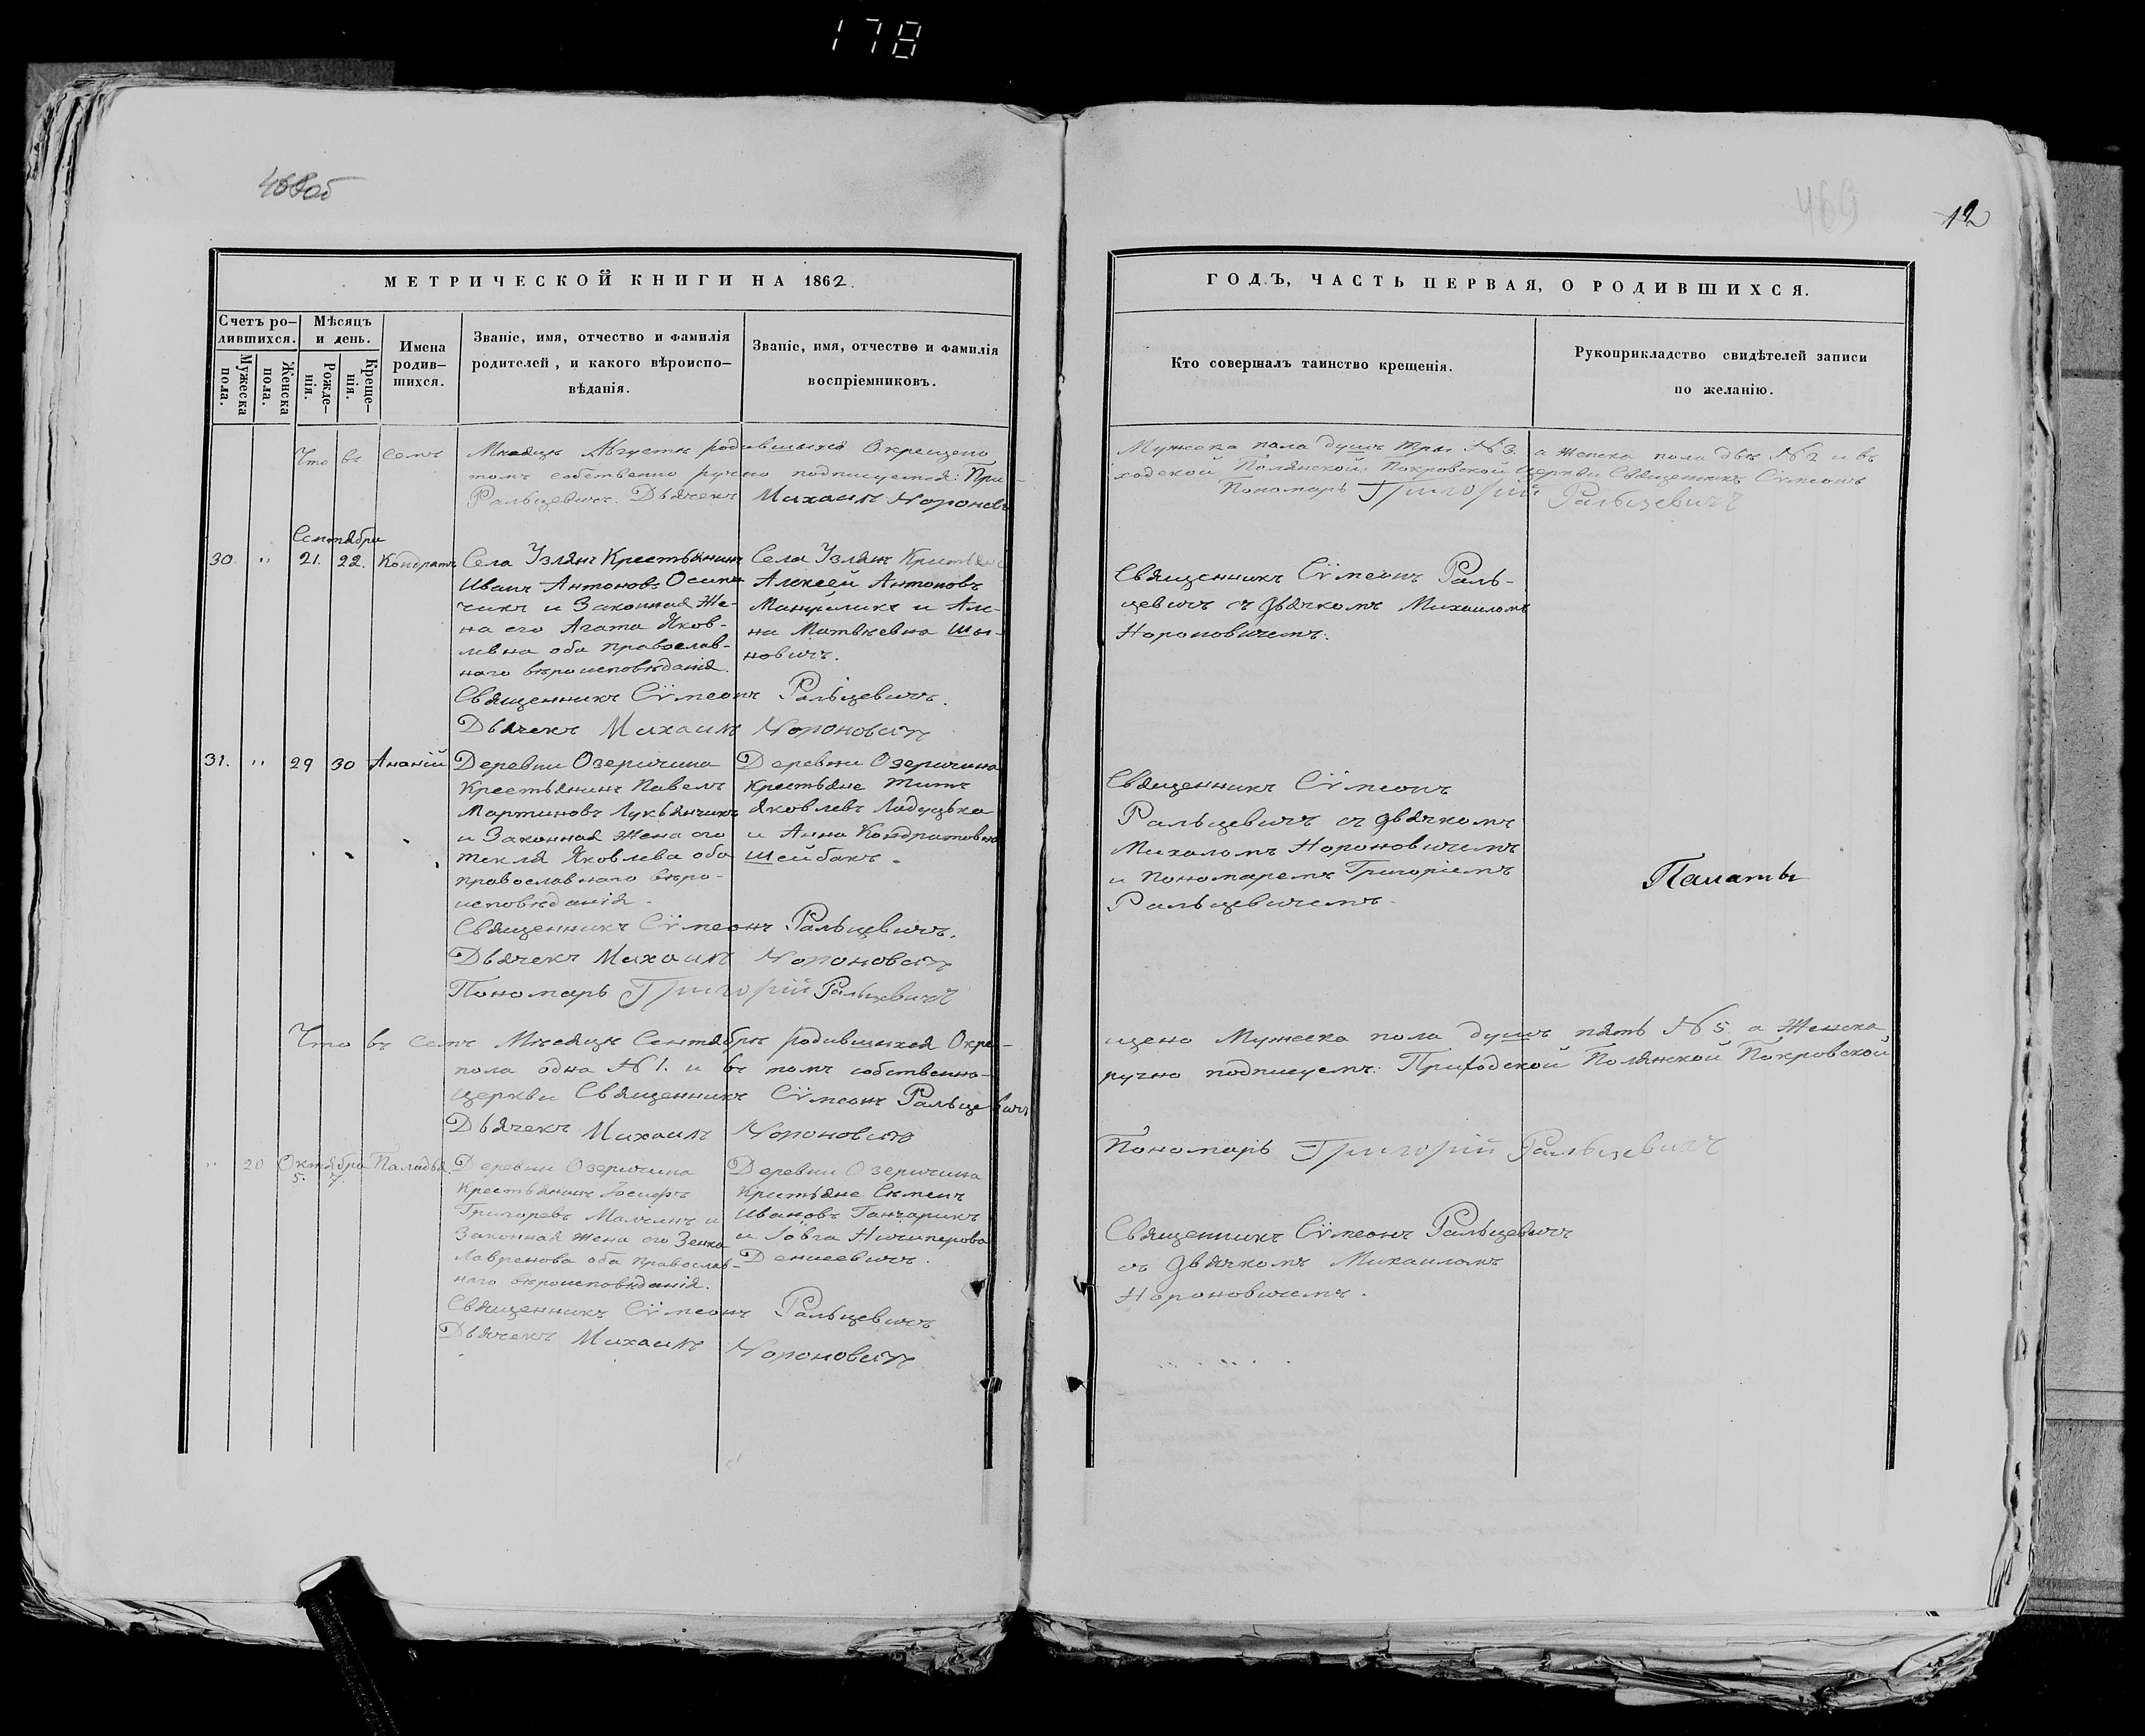 178
468об
469
12
МЕТРИЧЕСКОЙ КНИГИ НА 1862.
Счетъ ро-
дившихся.
Мужеска
пола.
Женска
пола.
Мѣсяцъ
и день.
Рожде-
нія.
Креще-
нія.
Имена
родив-
шихся.
Званіе, имя, отчество и фамилія
родителей, и какого вѣроиспо-
вѣданія.
Званіе, имя, отчество и фамилія
воспріемниковъ.
Что въ семъ Мѣсяцѣ Августѣ родившихся Окрещено
томъ собственно ручно подписуемся: При-
Ральцевичъ. Дьячекъ Михаилъ Нороновичъ
Сентября
30. " 21. 22. Кондратъ
Села Узлянъ Крестьянинъ
Иванъ Антоновъ Осипи
чикъ и Законная Же-
на его Агата Яков-
левна оба православ-
наго вѣроисповѣданія.
Села Узлянъ Крестьяне
Алексей Антоновъ
и Ан-
на Матвѣевна Шы-
новичъ.
Священникъ Сѵмеонъ Ральцевичъ.
Дьячекъ Михаилъ Нороновичъ
31. " 29 30 Ананій
Деревни Озеричина
Крестьянинъ Павелъ
Мартиновъ Лукьянчикъ
и Законная жена его
Текля Яковлева оба
православнаго вѣро-
исповѣданія.
Деревни Озеричина
Крестьяне Титъ
Яковлевъ Ладуцька
и Анна Кондратовна
Шейбакъ.
Священникъ Сѵмеонъ Ральцевичъ.
Дьячекъ Михаилъ Нороновичъ
Пономарь Григорій Ральцевичъ
Что въ семъ Мѣсяцѣ Сентябрѣ родившихся Окре-
пола одна №1. и въ томъ собственно-
церкви Священникъ Сѵмеонъ Ральцевичъ
Дьячекъ Михаилъ Нороновичъ
" 20 Октября 5. 7. Паладья.
Деревни Озеричина
Крестьянинъ Іосифъ
Григоревъ Малчинъ и
Законная жена его Зенка
Лавренова оба православ-
наго вѣроисповѣданія.
Деревни Озеричина
Крестьяне Семенъ
Ивановъ Ганчарикъ
и Іовга Ничиперова
Денисевичъ.
Священникъ Сѵмеонъ Ральцевичъ
Дьячекъ Михаилъ Нороновичъ
ГОДЪ, ЧАСТЬ ПЕРВАЯ, О РОДИВШИХСЯ.
Кто совершалъ таинство крещенія.
Рукоприкладство свидѣтелей записи
по желанію.
Мужеска пола душъ три №3. а женска пола двѣ №2 и въ
ходской Полянской Покровской Церкви Священникъ Сѵмеонъ
Пономарь Григорій Ральцевичъ
Священникъ Сѵмеонъ Раль-
цевичъ съ дьячкомъ Михаиломъ
Нороновичемъ.
Священникъ Сѵмеонъ
Ральцевичъ съ дьячкомъ
Михаломъ Нороновичемъ
и Пономаремъ Григоріемъ
Ральцевичемъ.
щено Мужеска пола душъ пять №5 а Женска
ручно подписуемъ: Приходской Полянской Покровской
Пономарь Григорій Ральцевичъ
Священникъ Сѵмеонъ Ральцевичъ
съ дьячкомъ Михаиломъ
Нороновичемъ.